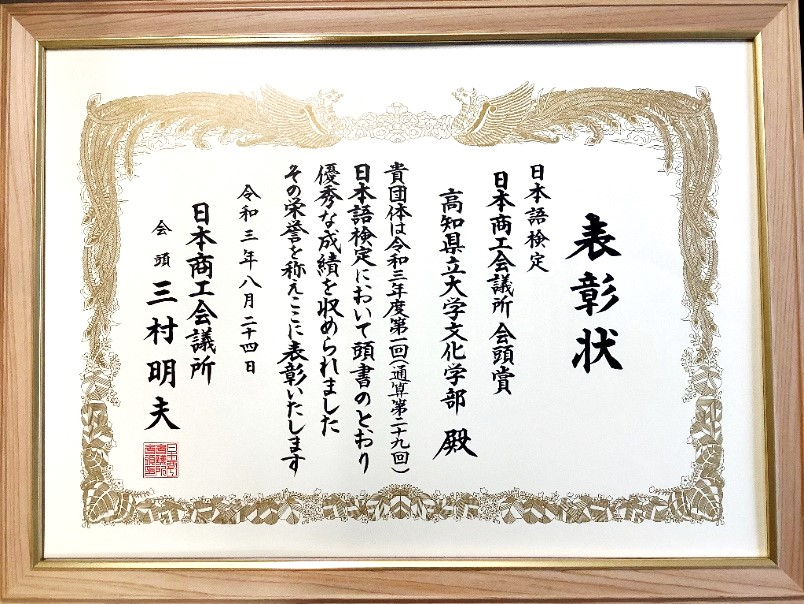 表彰状
日本語検定
日本商工会議所 会頭賞
高知県立大学文化学部 殿
貴団体は令和三年度第一回(通算第二十九回)
日本語検定において頭書のとおり
優秀な成績を収められました
その栄誉を称えここに表彰いたします
令和三年八月二十四日
日本商工会議所
会頭 三村明夫